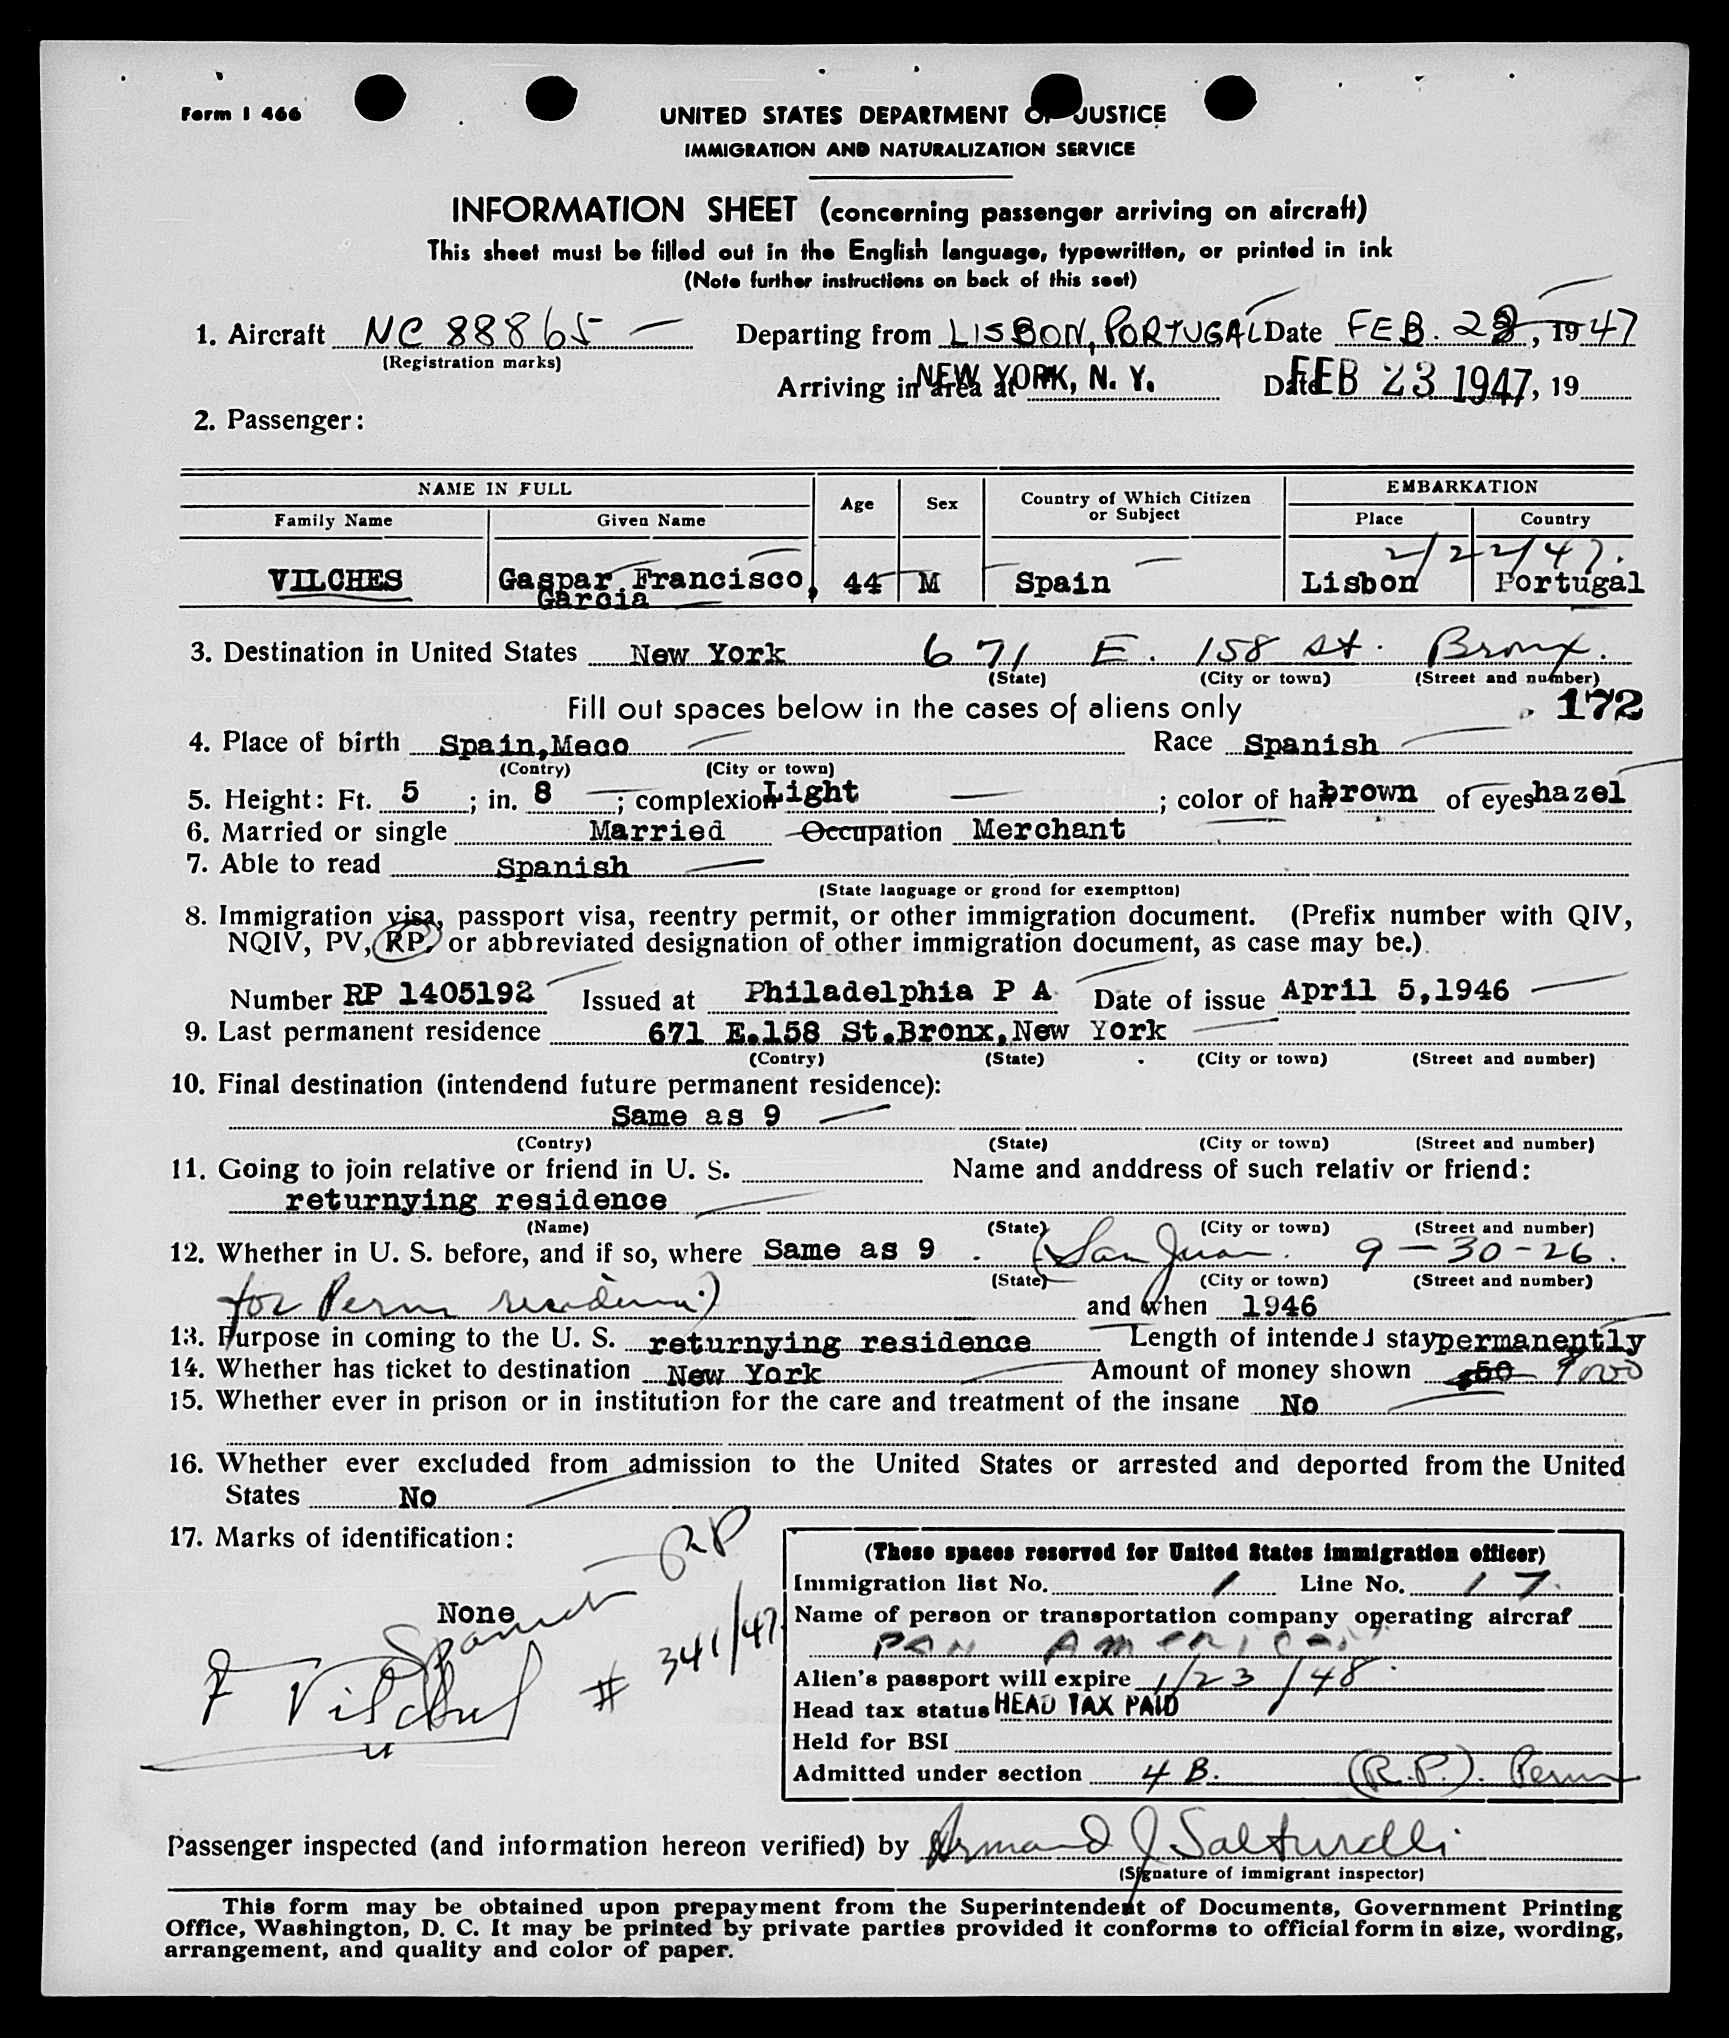 Form I 466
UNITED STATES DEPARTMENT OF JUSTICE
IMMIGRATION AND NATURALIZATION SERVICE
INFORMATION SHEET (concerning passenger arriving on aircraft)
This sheet must be filled out in the English language, typewritten, or printed in ink
(Note further instructions on back of this seet)
1. Aircraft NC 88865 Departing from LISBON, PORTUGAL Date FEB. 22, 1947
(Registration marks)
Arriving in area at NEW YORK, N. Y. Date FEB 23 1947, 19
2. Passenger:
NAME IN FULL Age Sex Country of Which Citizen or Subject EMBARKATION
Family Name Given Name Place Country
2/22/47.
VILCHES Gaspar Francisco, 44 M Spain Lisbon Portugal
Garcia
3. Destination in United States New York 671 E. 158 st. Bronx.
(State) (City or town) (Street and number)
Fill out spaces below in the cases of aliens only 172
4. Place of birth Spain,Meco Race Spanish
(Contry) (City or town)
5. Height: Ft. 5; in. 8; complexion Light; color of hair brown of eyes hazel
6. Married or single Married Occupation Merchant
7. Able to read Spanish
(State language or grond for exemptton)
8. Immigration visa, passport visa, reentry permit, or other immigration document. (Prefix number with QIV,
NQIV, PV, RP, or abbreviated designation of other immigration document, as case may be.)
Number RP 1405192 Issued at Philadelphia P A Date of issue April 5,1946
9. Last permanent residence 671 E.158 St.Bronx,New York
(Contry) (State) (City or town) (Street and number)
10. Final destination (intendend future permanent residence):
Same as 9
(Contry) (State) (City or town) (Street and number)
11. Going to join relative or friend in U. S. Name and anddress of such relativ or friend:
returnying residence
(Name) (State) (City or town) (Street and number)
12. Whether in U. S. before, and if so, where Same as 9 . (San Juan. 9-30-26.
(State) (City or town) (Street and number)
for Perm residence.) and when 1946
13. Purpose in coming to the U. S. returnying residence Length of intended stay permanently
14. Whether has ticket to destination New York Amount of money shown $50 9000
15. Whether ever in prison or in institution for the care and treatment of the insane No
16. Whether ever excluded from admission to the United States or arrested and deported from the United
States No
17. Marks of identification:
RP
None
Spanish
# 341/47
F Vilches
(These spaces reserved for United States immigration officer)
Immigration list No. 1 Line No. 17.
Name of person or transportation company operating aircraf
PAN AMERICAN
Alien's passport will expire 1/23/48.
Head tax status HEAD TAX PAID
Held for BSI
Admitted under section 4 B. (R.P.). Perm
Passenger inspected (and information hereon verified) by Armand J Salturelli
(Signature of immigrant inspector)
This form may be obtained upon prepayment from the Superintendent of Documents, Government Printing
Office, Washington, D. C. It may be printed by private parties provided it conforms to official form in size, wording,
arrangement, and quality and color of paper.